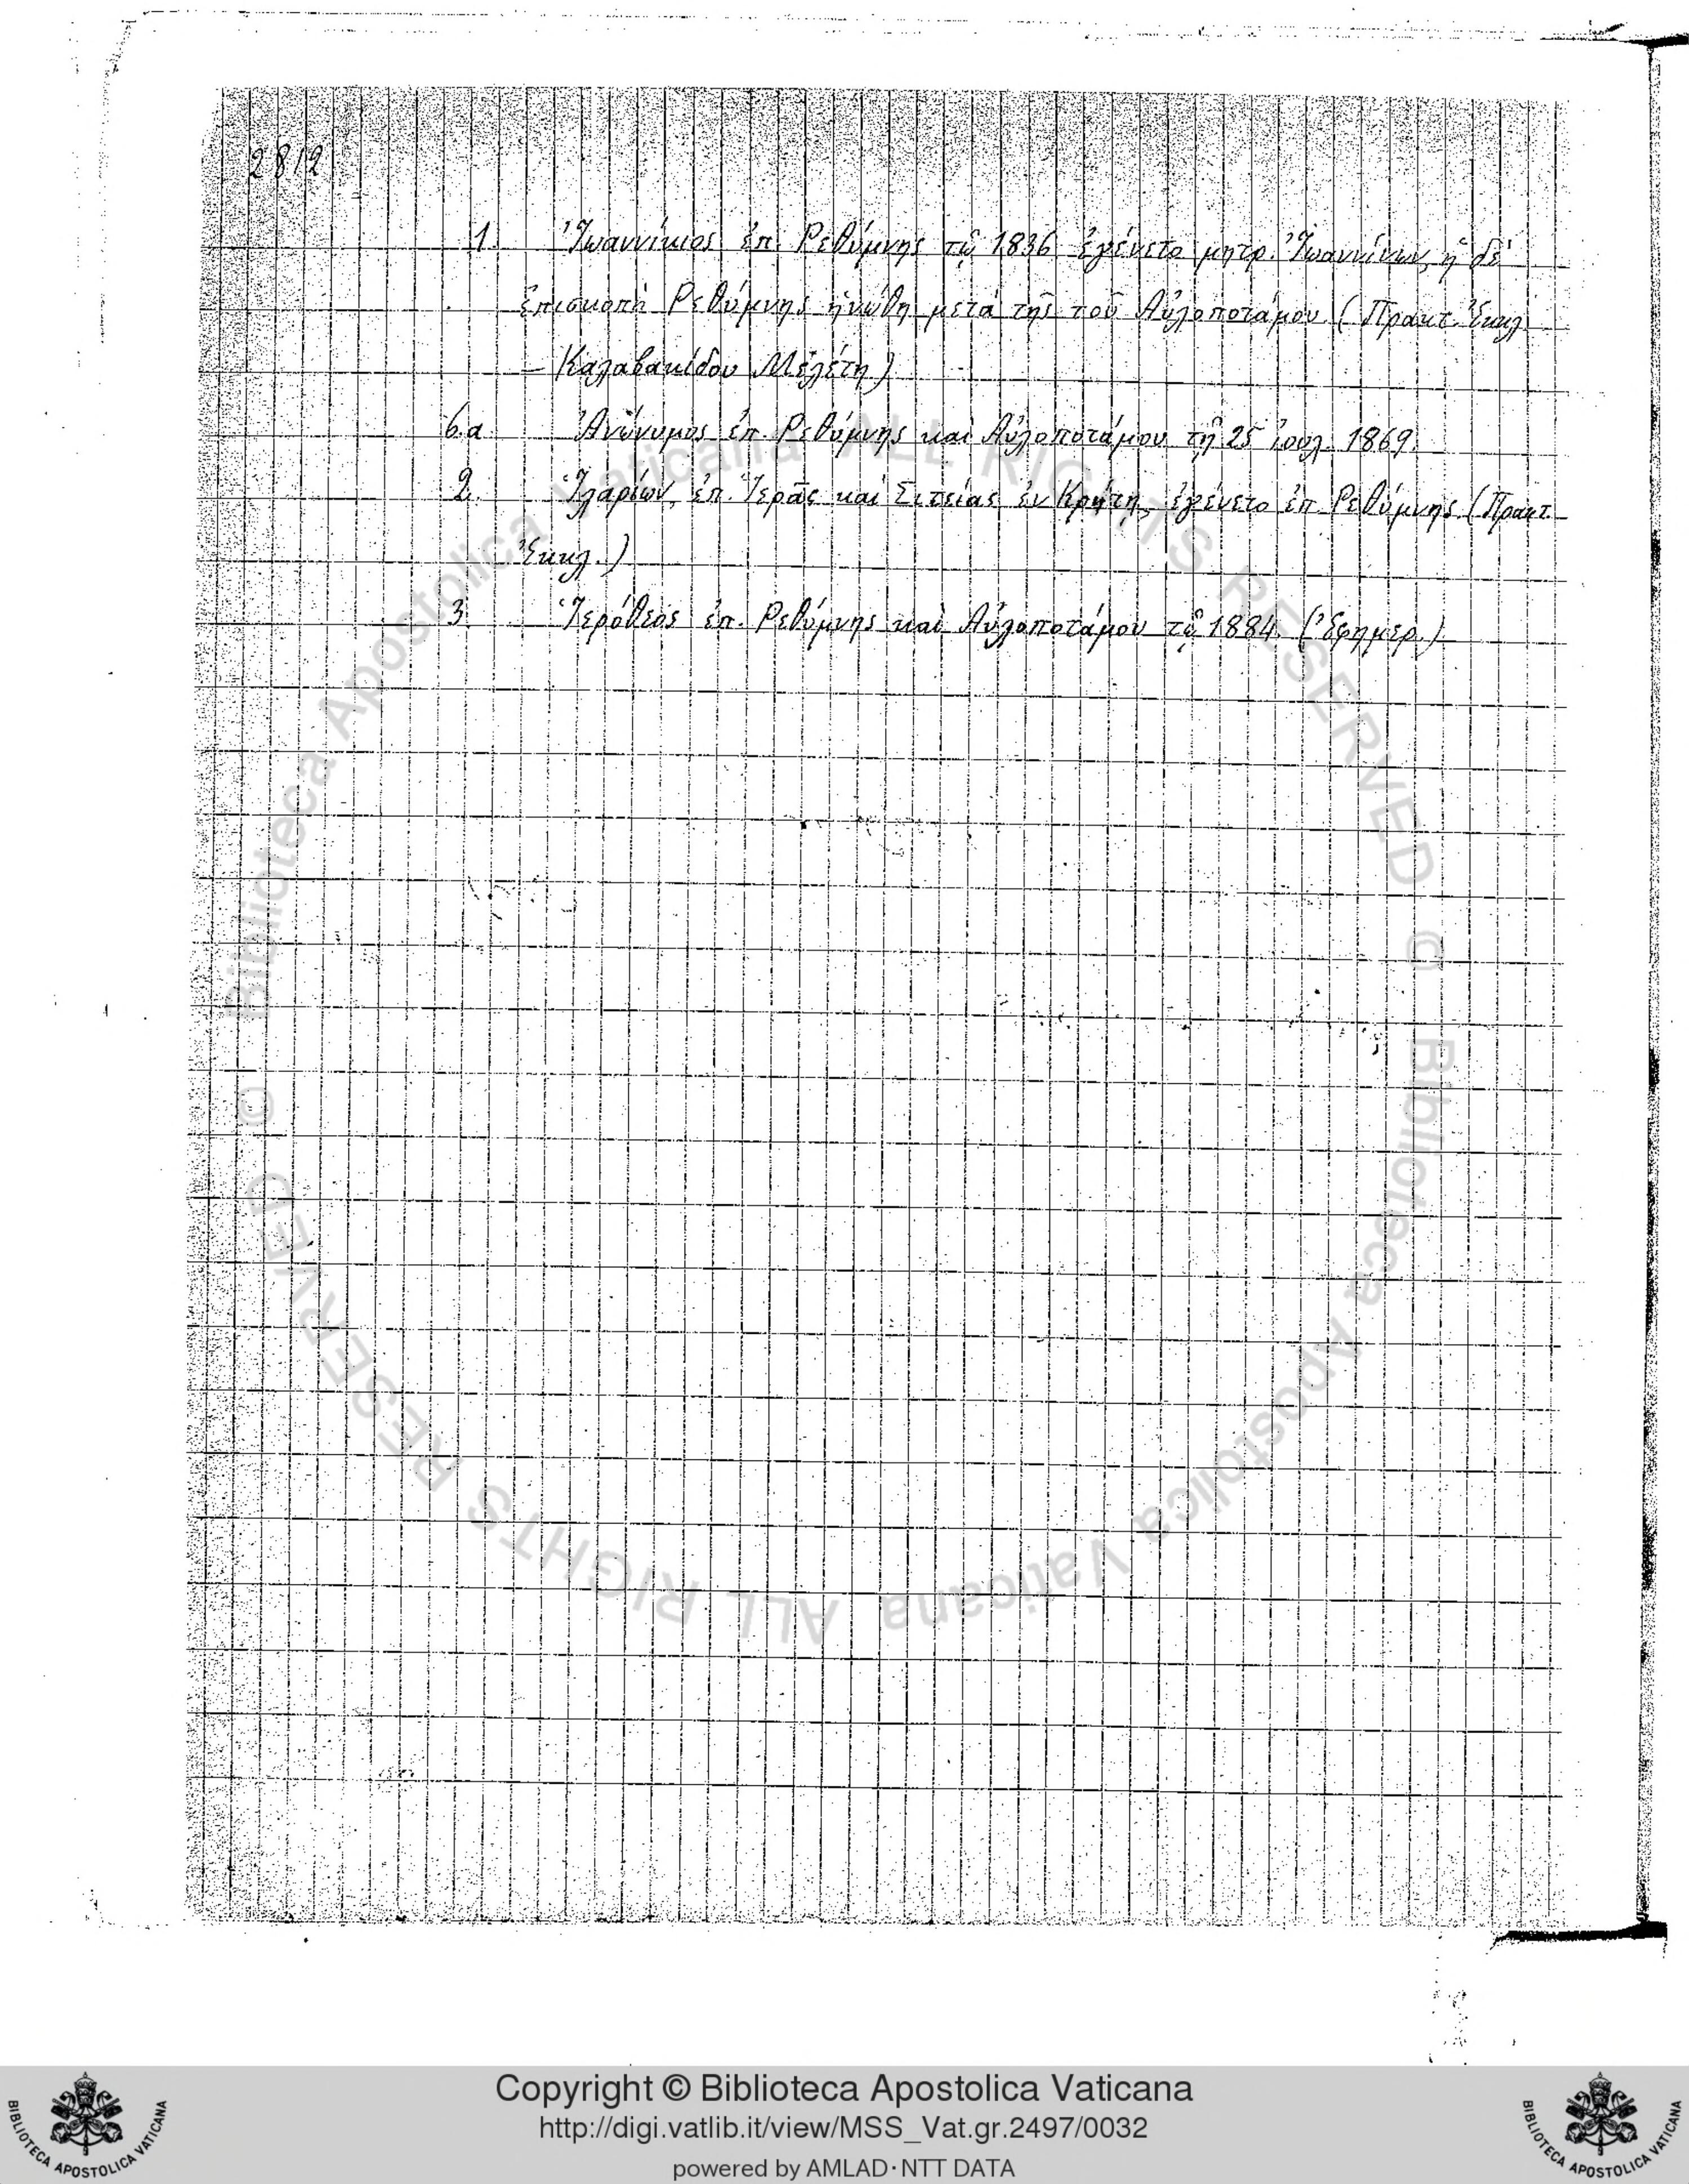 2812
1. Ἰωαννίκιος ἐπ. Ρεθύμνης τῷ 1836 ἐγένετο μητρ. Ἰωαννίνων, ἡ δὲ
ἐπισκοπὴ Ρεθύμνης ἡνώθη μετὰ τῆς τοῦ Αὐλοποτάμου. (Πρακτ. Ἐκκλ.
– Καλαβακίδου Μελέτη)
6.α. Ἀνώνυμος ἐπ. Ρεθύμνης καὶ Αὐλοποτάμου τῇ 25 ἰουλ. 1869.
2. Ἱλαρίων, ἐπ. Ἱερᾶς καὶ Σιτείας ἐν Κρήτῃ, ἐγένετο ἐπ. Ρεθύμνης. (Πρακτ.
Ἐκκλ.)
3. Ἱερόθεος ἐπ. Ρεθύμνης καὶ Αὐλοποτάμου τῷ 1884. (Ἐφημερ.)
© Biblioteca Apostolica Vaticana ALL RIGHTS RESERVED © Biblioteca Apostolica Vaticana ALL RIGHTS RESERVED
Copyright © Biblioteca Apostolica Vaticana
http://digi.vatlib.it/view/MSS_Vat.gr.2497/0032
powered by AMLAD·NTT DATA
BIBLIOTECA APOSTOLICA VATICANA
BIBLIOTECA APOSTOLICA VATICANA